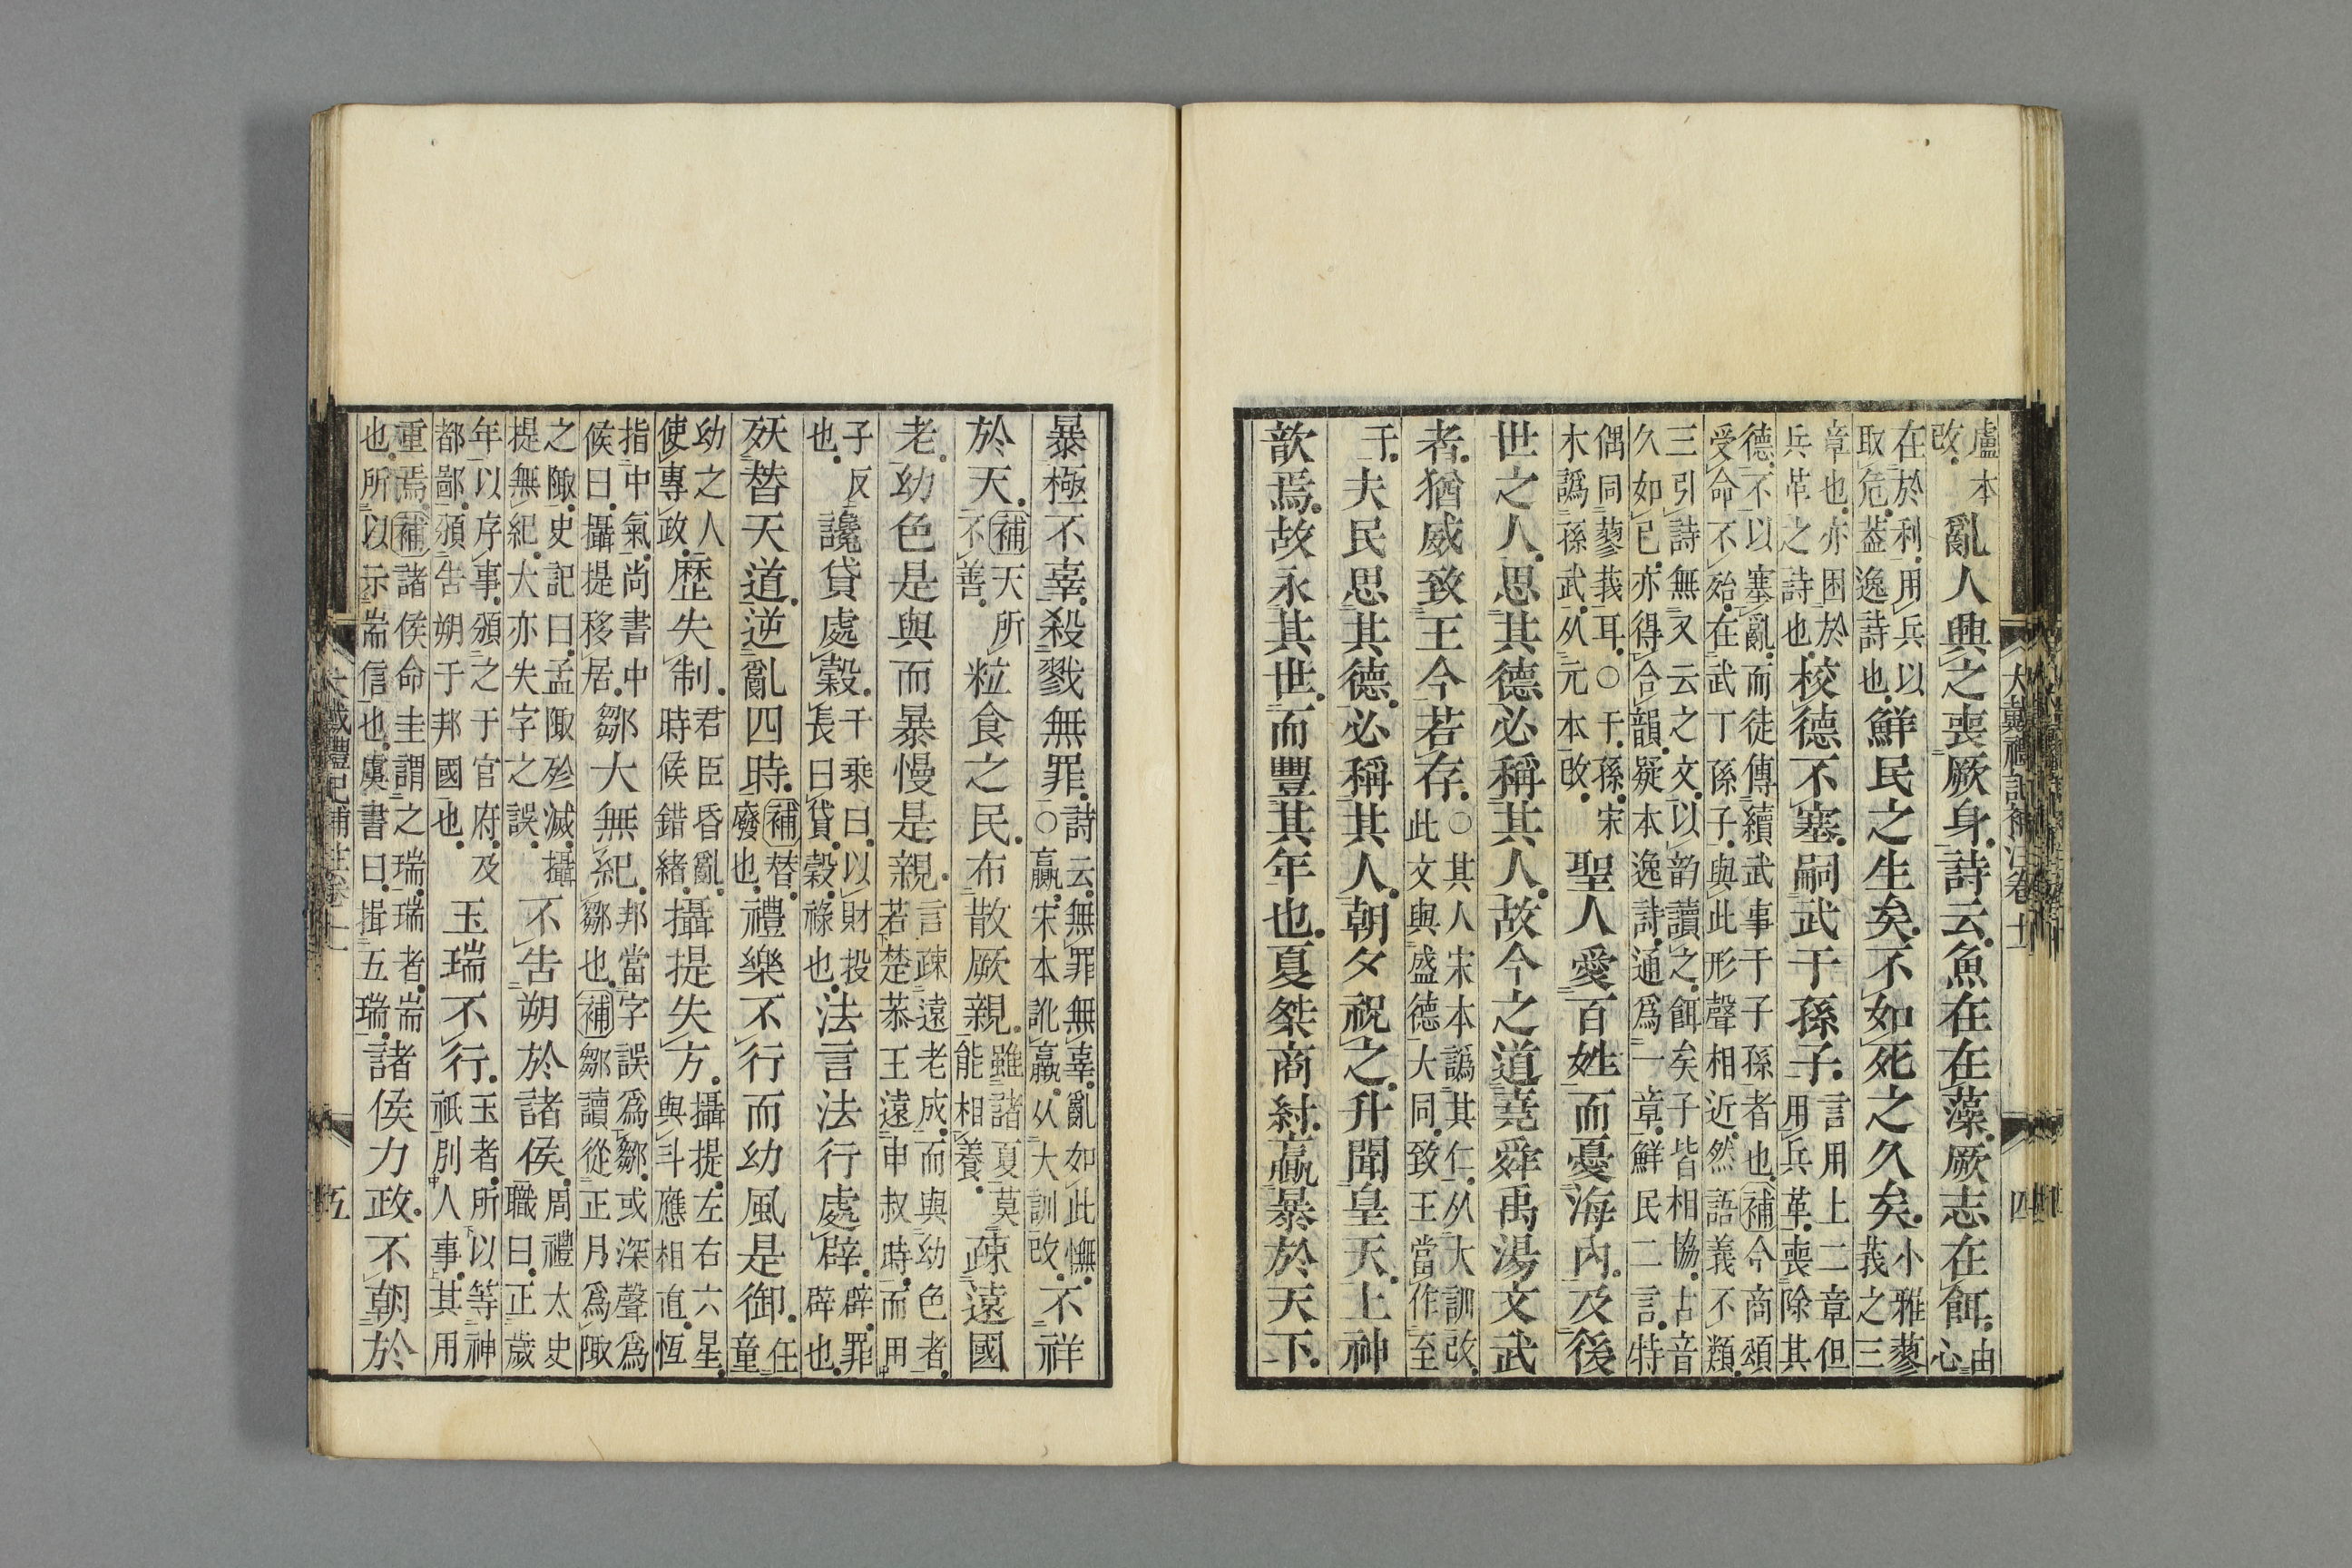 盧本改亂人興之喪厥身詩云魚在在藻厥志在餌由心
在於利用兵以取危蓋逸詩也鮮民之生矣不如死之久矣小雅蓼莪之三
章也亦困於兵革之詩也校德不塞嗣武于孫子言用上二章但用兵革喪除其
德不以塞亂而徒傳續武事于子孫者也補今商頌受命不殆在武丁孫子與此形聲相近然語義不類
三引詩無又云之文以韵讀之餌矣子皆相協古音久如巳亦得合韻疑本逸詩通爲一章鮮民二言特
偶同蓼莪耳○于孫宋本譌孫武从元本改聖人愛百姓而憂海内及後
世之人思其德必稱其人故今之道堯舜禹湯文武
者猶威致王今若存○其人宋本譌其仁从大訓改此文與盛德大同致王當作至
于夫民思其德必稱其人朝夕祝之升聞皇天上神
歆焉故永其世而豐其年也夏桀商紂羸暴於天下
大戴禮記補注卷十一 四
暴極不辜殺戮無罪詩云無罪無辜亂如此憮○羸宋本訛嬴从大訓改不祥
於天補天所不善粒食之民布散厥親雖諸夏莫能相養疎遠國
老幼色是與而暴慢是親言疎遠老成而與幼色者若楚恭王遠申叔時而用
子反也讒貸處穀千乘曰以財投長曰貸穀祿也法言法行處辟辟罪辟也
殀替天道逆亂四時補替廢也禮樂不行而幼風是御任童
幼之人使專政歷失制君臣昏亂時候錯緒攝提失方攝提左右六星與斗應相直恆
指中中氣尚書中候曰攝提移居鄒大無紀邦當字誤爲鄒或深聲爲鄒也補鄒讀從正月爲陬
之陬史記曰孟陬殄滅攝提無紀大亦失字之誤不告朔於諸侯周禮太史職曰正歲
年以序事頒之于官府及都鄙頒告朔于邦國也玉瑞不行玉者所以等神祇別人事其用
重焉補諸侯命圭謂之瑞瑞者耑也所以示耑信也虞書曰揖五瑞諸侯力政不朝於
大戴禮記補注卷十一 五